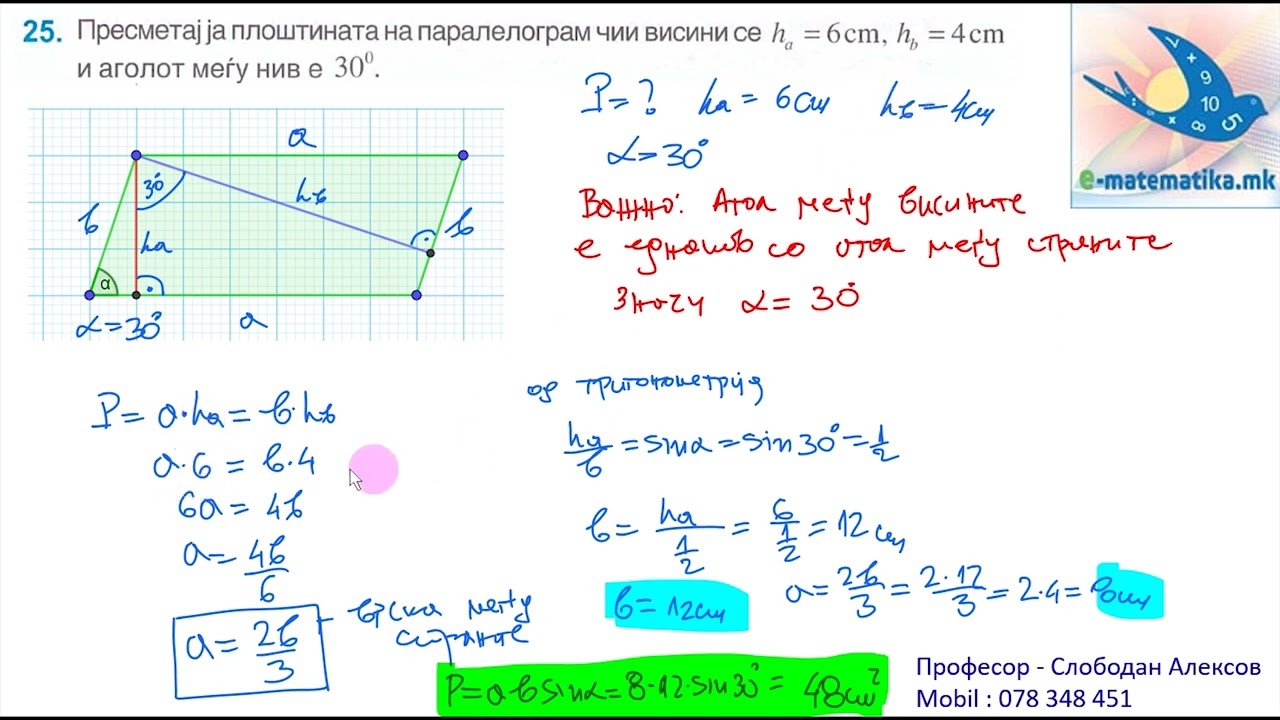 25. Пресметај ја плоштината на паралелограм чии висини се hₐ = 6cm, h_b = 4cm
и аголот меѓу нив е 30⁰.
P=? ha = 6cm hв=4cm
α=30°
Важно: Агол меѓу висините
е еднаков со агол меѓу страните
Значи α= 30°
a
30°
hв
в
в
ha
α
α=30°
a
P= a·ha = в·hв
a·6 = в·4
6a = 4в
a= 4в/6
a= 2в/3
врска меѓу
страните
од тригонометрија
ha/в = sinα = sin30° = 1/2
в= ha/(1/2) = 6/(1/2) = 12cm
в=12cm
a= 2в/3 = 2·12/3 = 2·4 = 8cm
P=aвsinα=8·12·sin30°= 48cm²
9
10
5
8
e-matematika.mk
Професор - Слободан Алексов
Mobil : 078 348 451